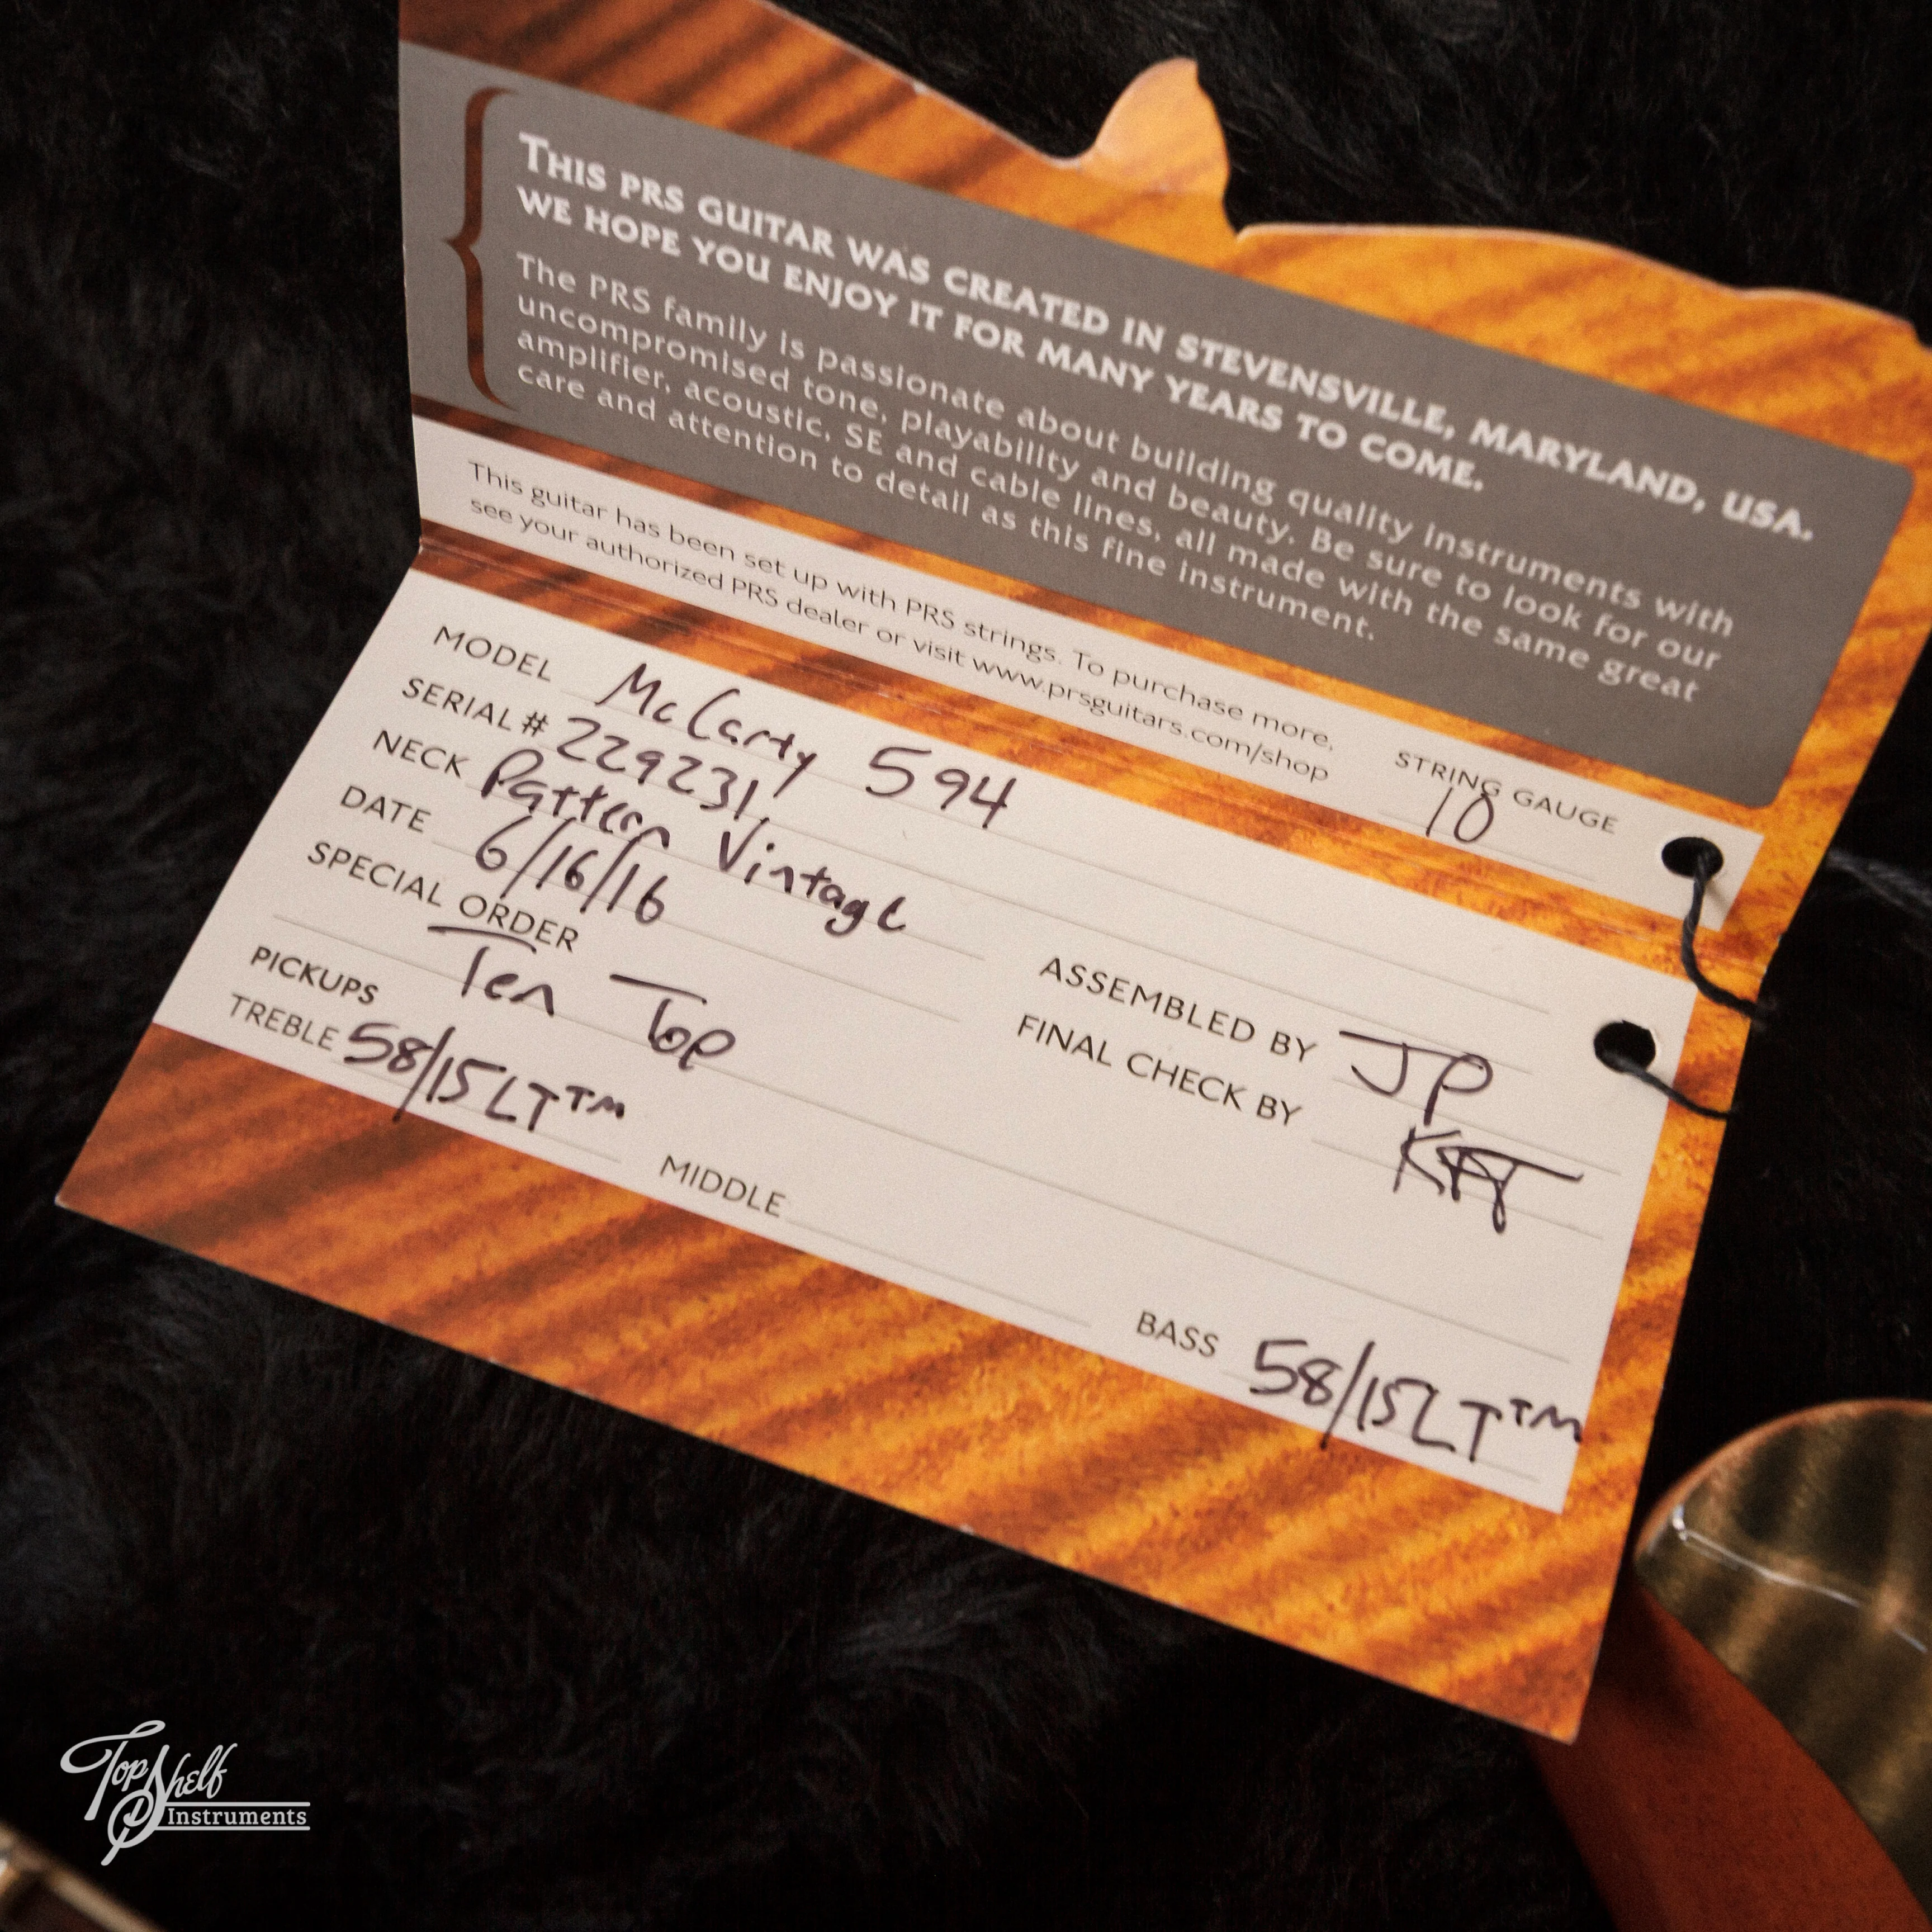 THIS PRS GUITAR WAS CREATED IN STEVENSVILLE, MARYLAND, USA.
WE HOPE YOU ENJOY IT FOR MANY YEARS TO COME.
The PRS family is passionate about building quality instruments with
uncompromised tone, playability and beauty. Be sure to look for our
amplifier, acoustic, SE and cable lines, all made with the same great
care and attention to detail as this fine instrument.
This guitar has been set up with PRS strings. To purchase more,
see your authorized PRS dealer or visit www.prsguitars.com/shop
STRING GAUGE
10
MODEL McCarty 594
SERIAL # 229231
NECK Pattern Vintage
DATE 6/16/16
ASSEMBLED BY JP
SPECIAL ORDER
FINAL CHECK BY
Ten Top
PICKUPS
TREBLE 58/15LT™
MIDDLE
BASS 58/15LT™
Top Shelf
Instruments